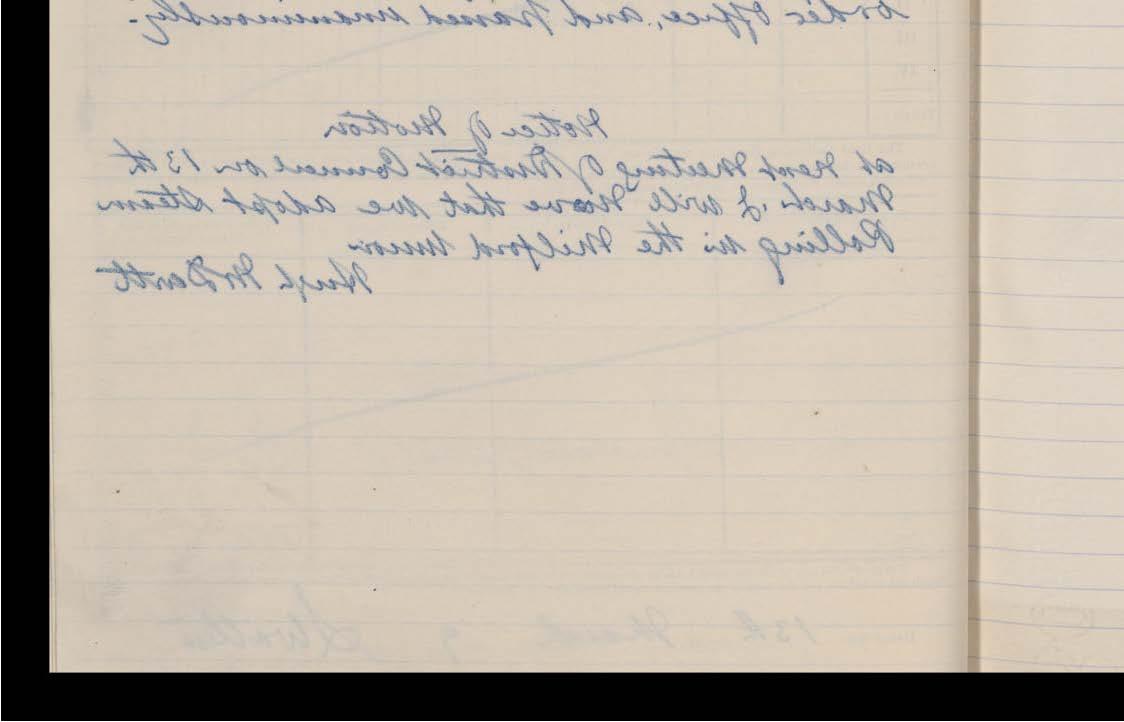 to his Office, and passed unanimously.
Notice of Motion
At next Meeting of District Council on 13th
March, I will move that we adopt Steam
Rolling in the Milford Union
Hugh
13th March 9